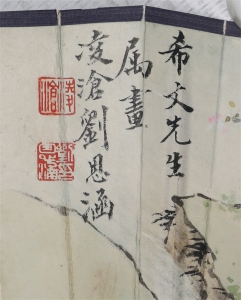 希文先生
属畫
凌滄劉恩涵